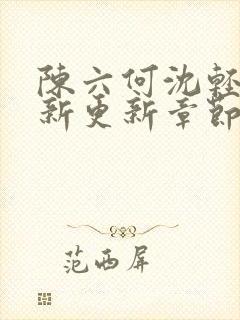 陳六何沈輕
新更新章節
范西屏